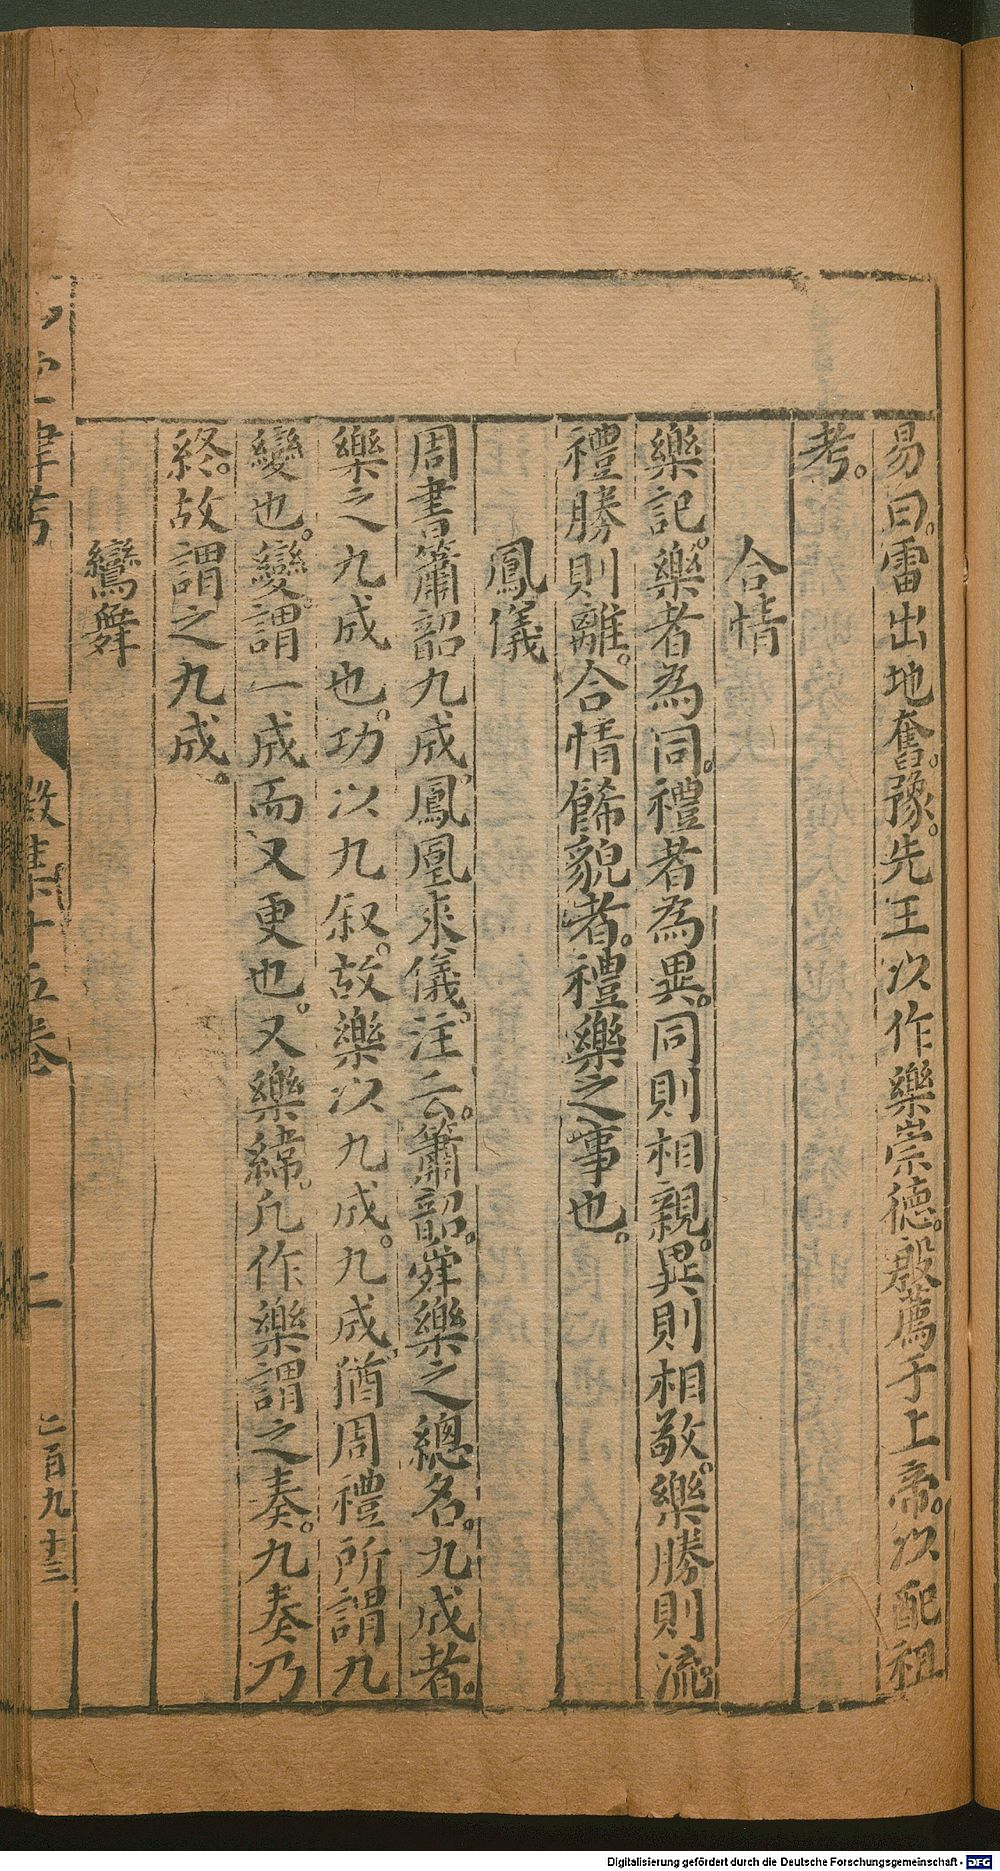 易曰。雷出地奮。豫。先王以作樂崇德。殷薦于上帝。以配祖
考。
合情
樂記。樂者為同。禮者為異。同則相親。異則相敬。樂勝則流。
禮勝則離。合情餙貌者。禮樂之事也。
鳳儀
周書簫韶九成。鳳凰來儀。注云。簫韶。舜樂之總名。九成者。
樂之九成也。功以九叙。故樂以九成。九成。猶周禮所謂九
變也。變謂一成而又更也。又樂緯。凡作樂謂之奏。九奏乃
終。故謂之九成。
鸞舞
數集十五卷
二
二百九十三
Digitalisierung gefördert durch die Deutsche Forschungsgemeinschaft - DFG